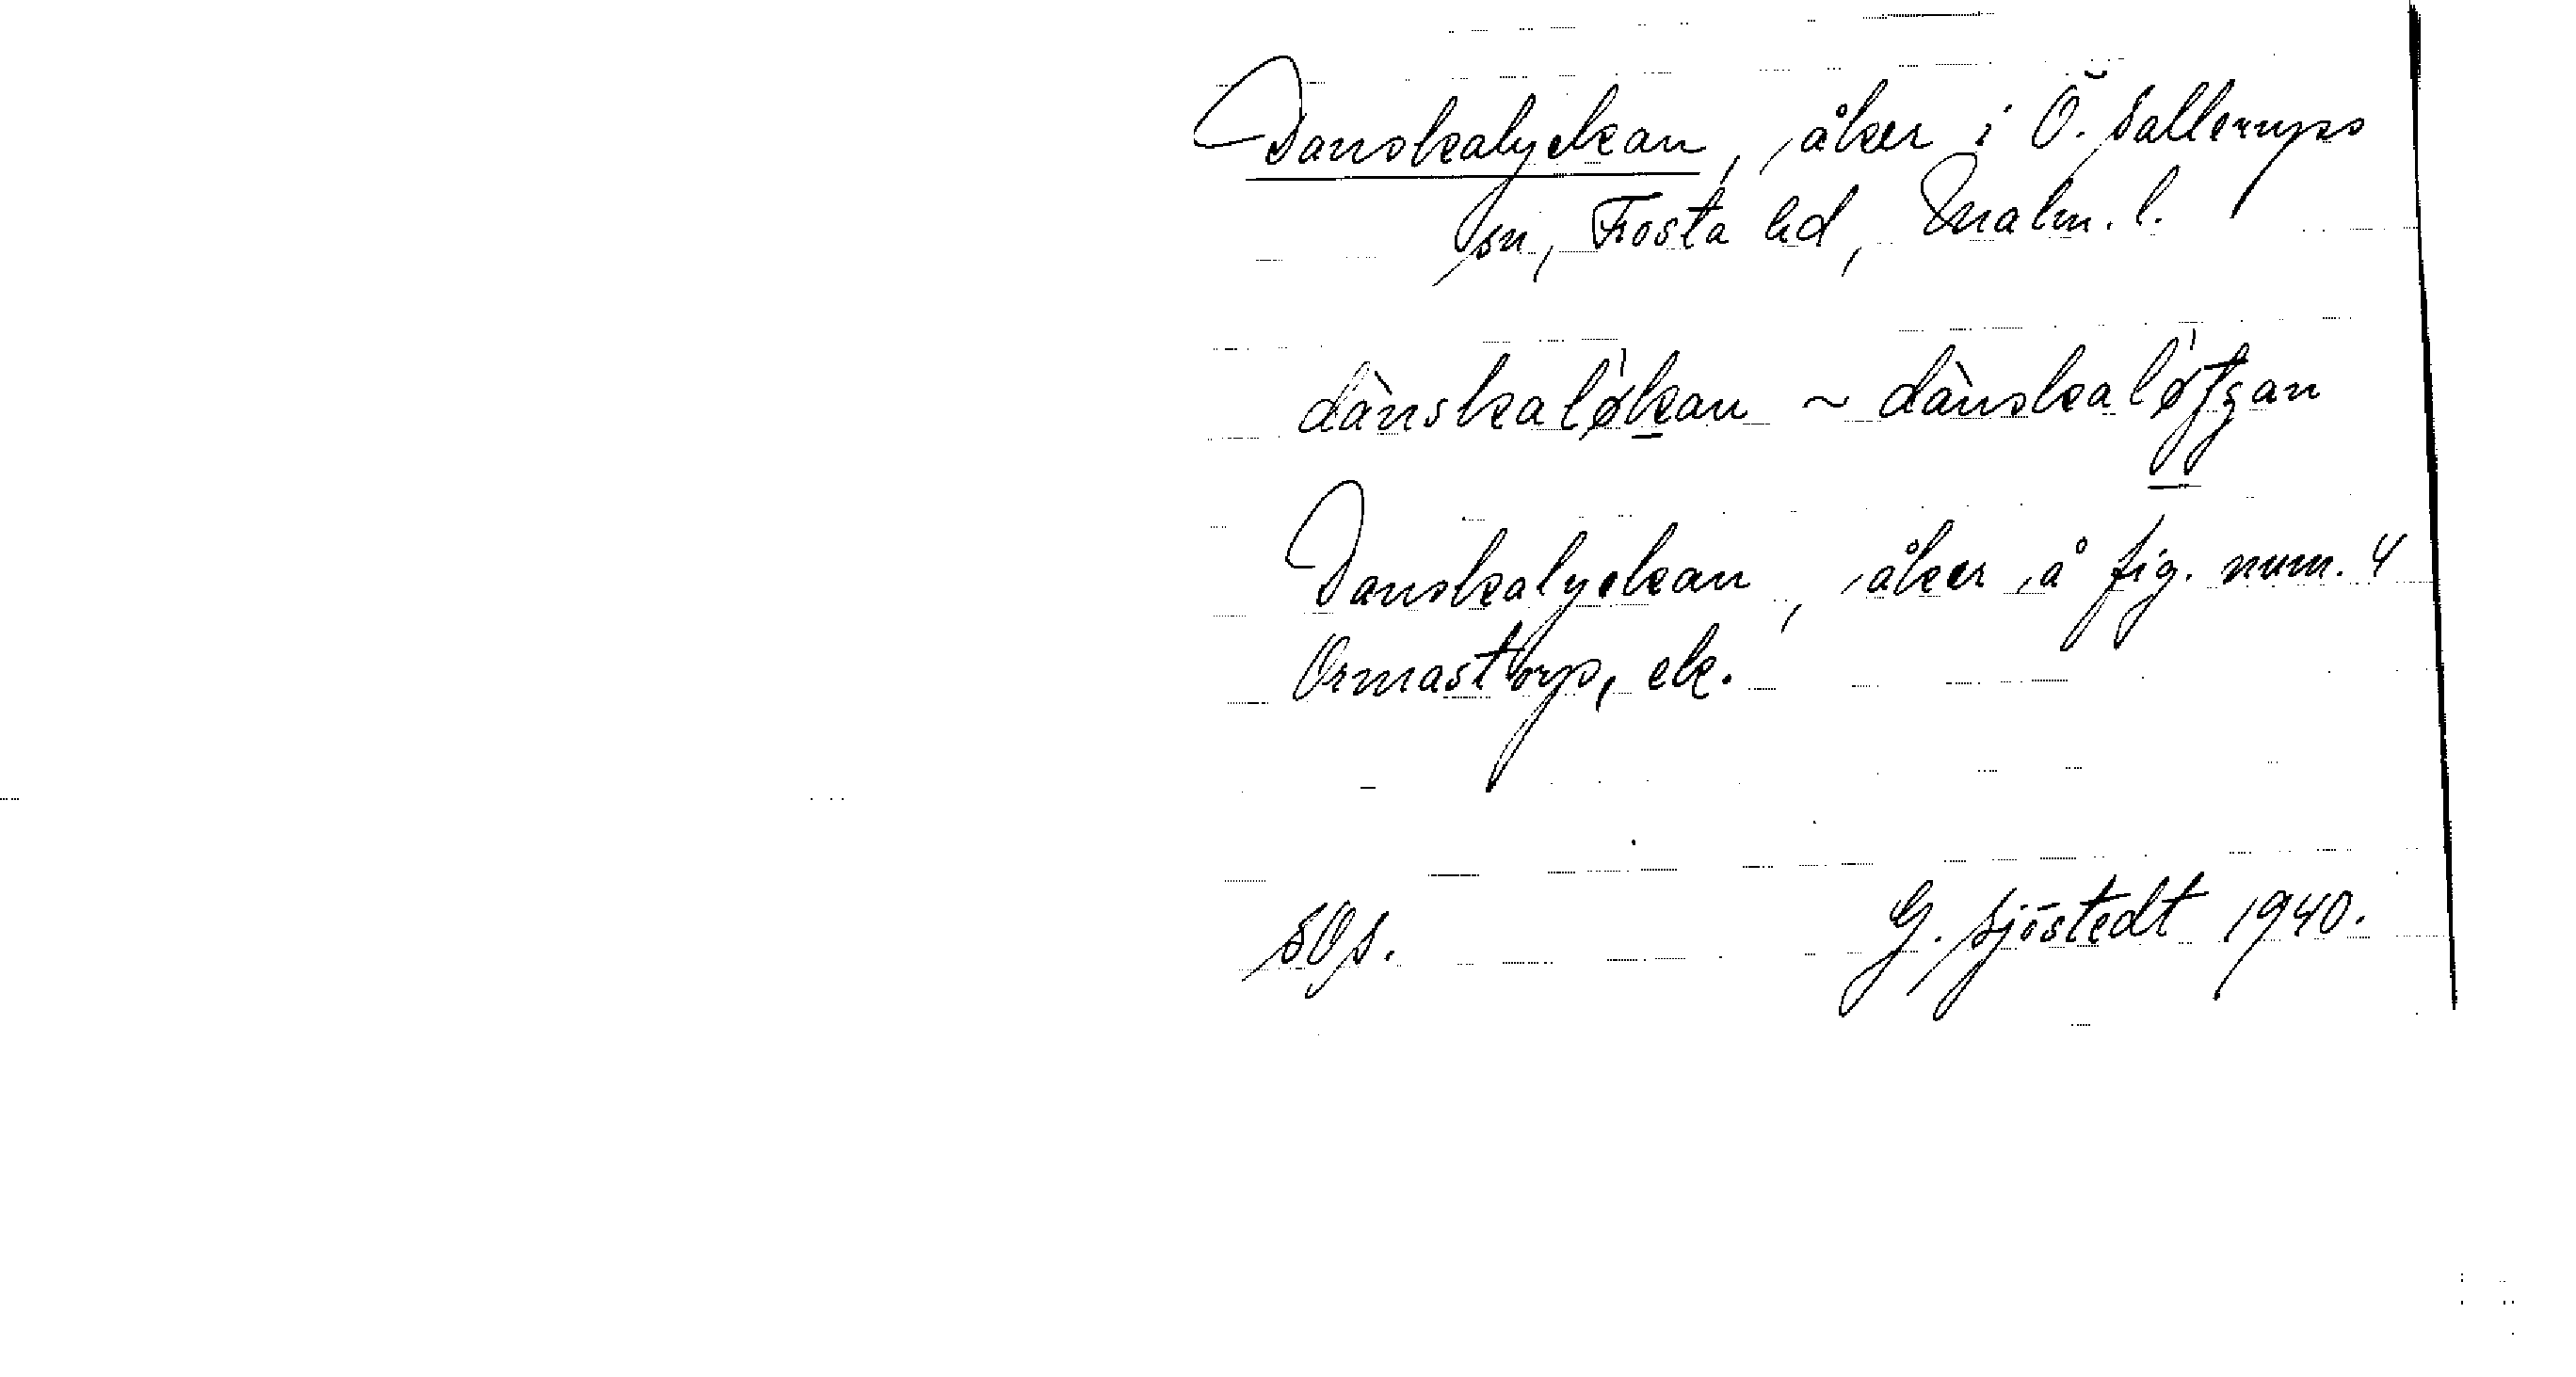 Danskalyckan, åker i Ö. Sallerups
sn, Frosta hd, Malm. l.
dànskaløkan ~ dànskal
Danskalyckan, åker å fig. num. 4
Ormastorp, ek.
SOS. G. Sjöstedt 1940.